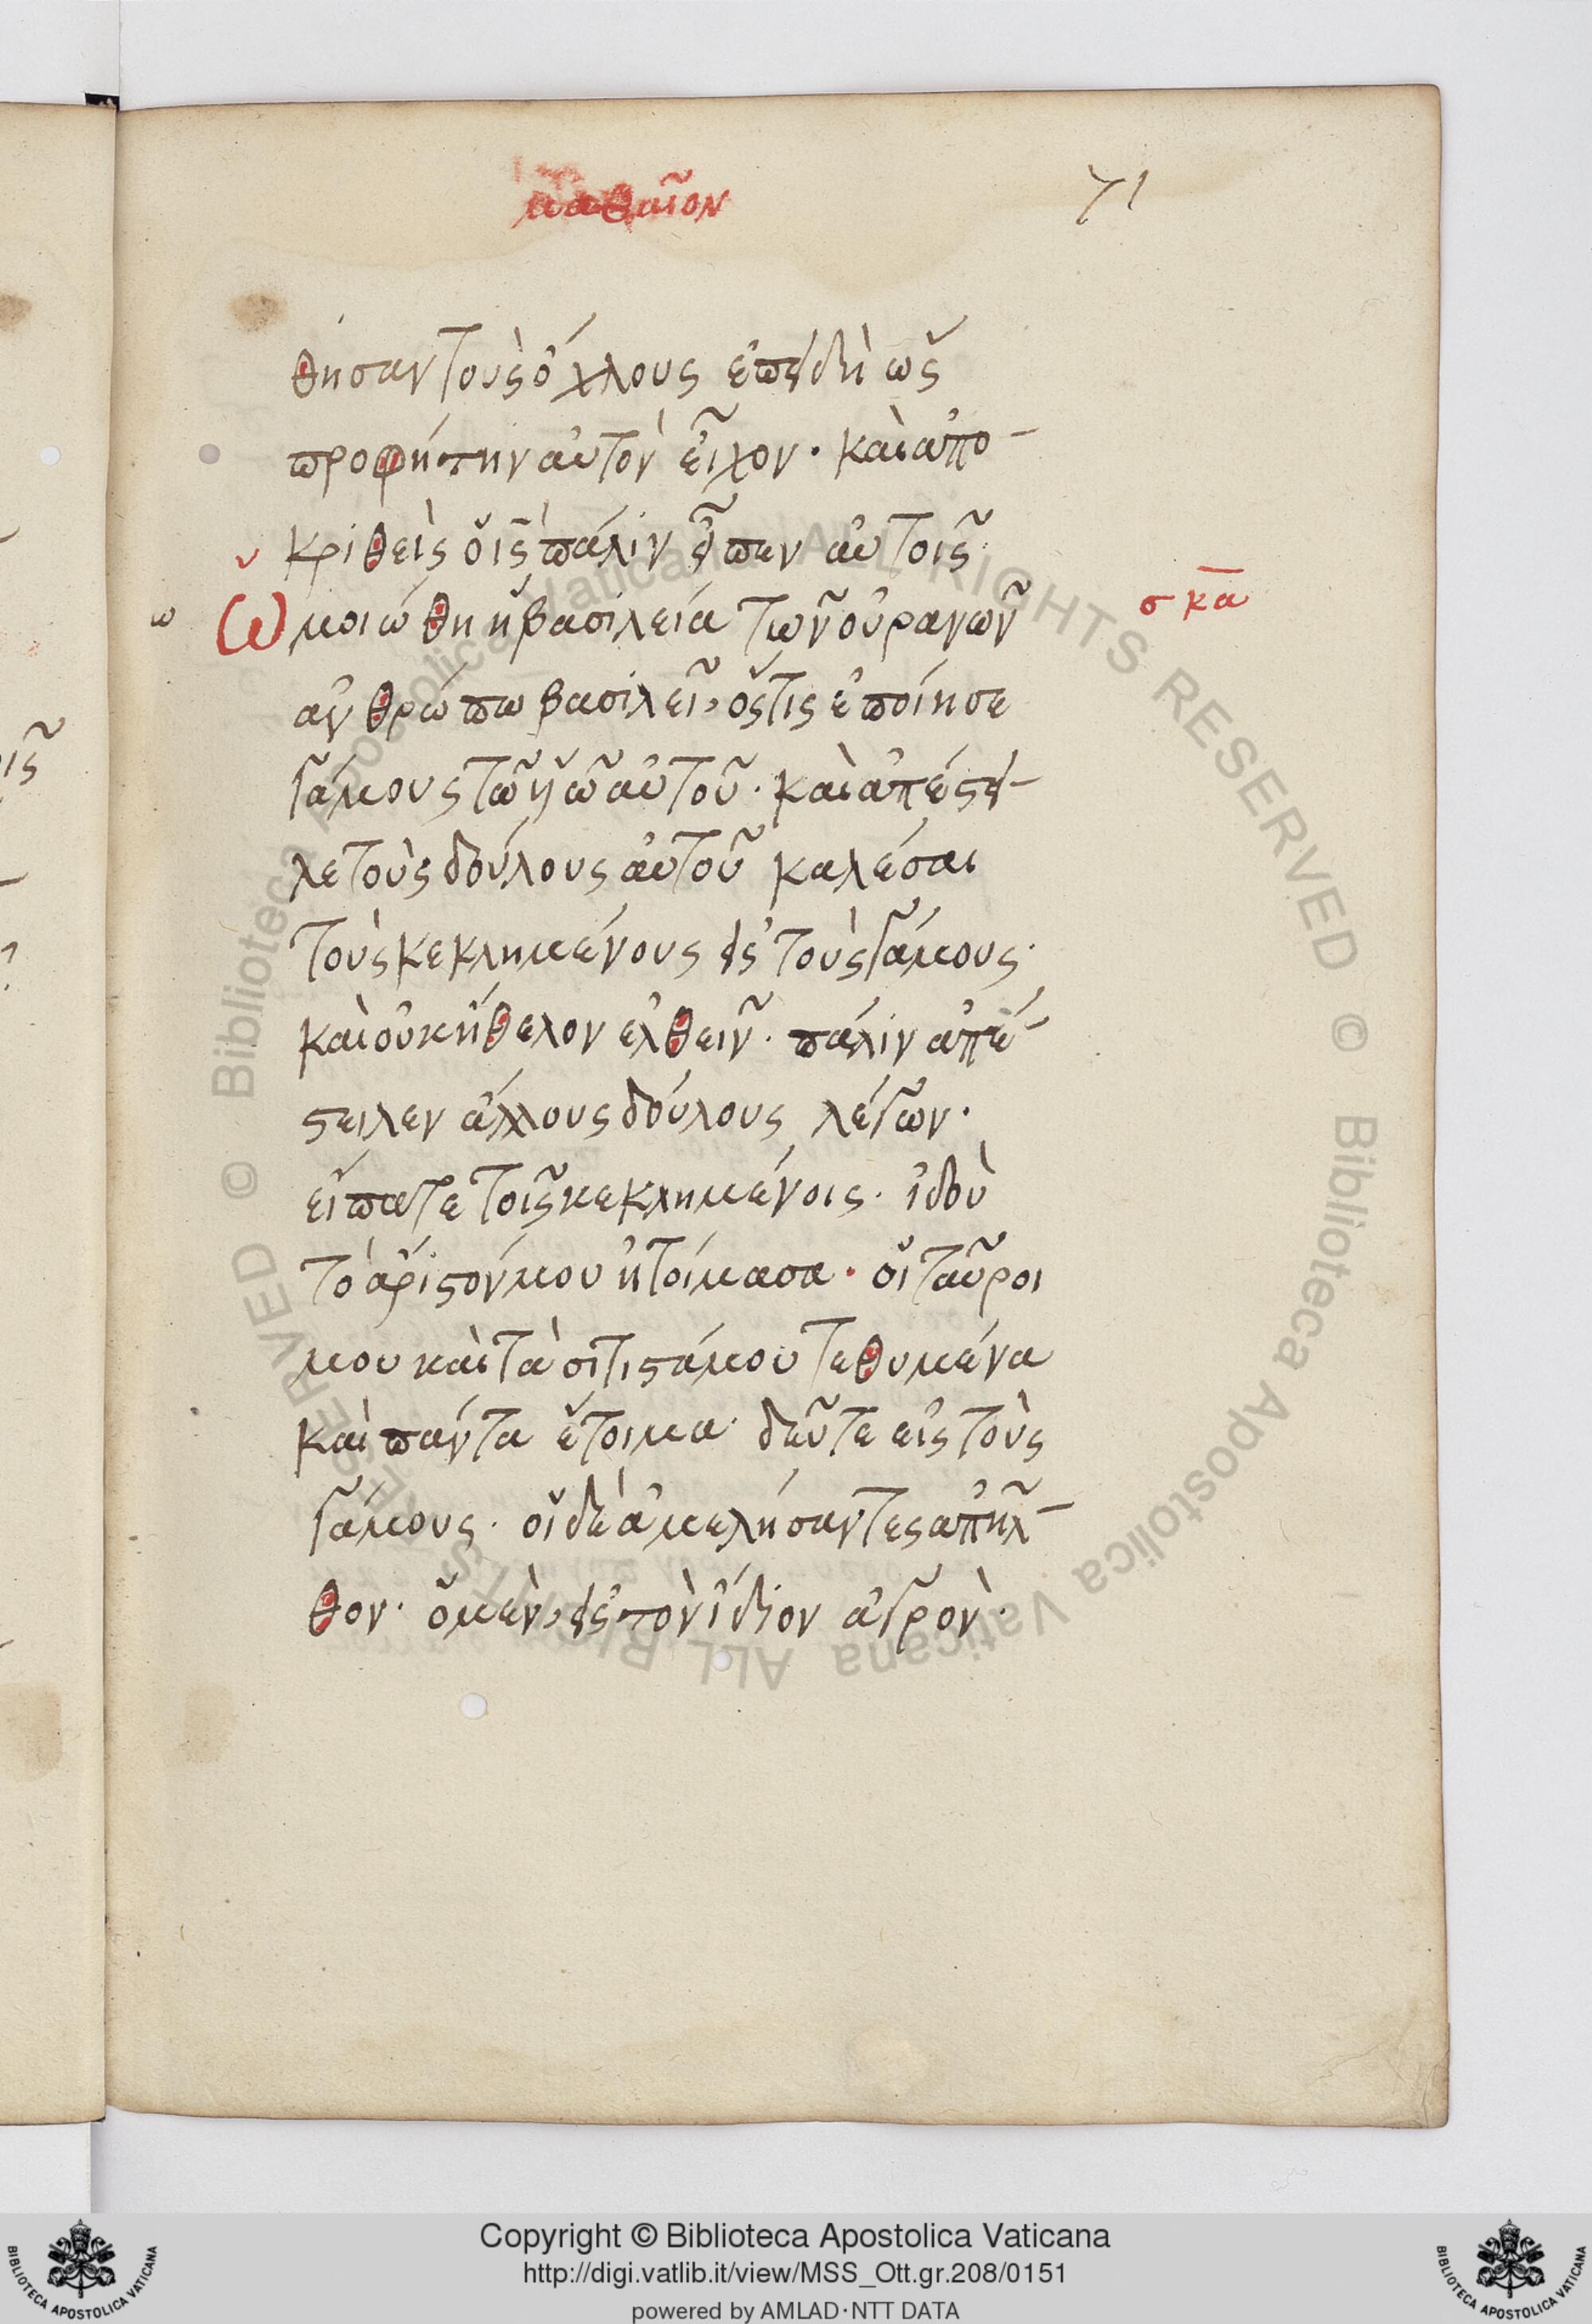 ματθαῖον
71
θησαν τοὺς ὄχλους ἐπειδὴ ὡς
προφήτην αὐτὸν εἶχον· καὶ ἀπο-
κριθεὶς ὁ ις πάλιν εἶπεν αὐτοῖς·
Ὡμοιώθη ἡ βασιλεία τῶν οὐρανῶν
σκα
ἀνθρώπω βασιλεῖ, ὅστις ἐποίησε
γάμους τῶ υἱῶ αὐτοῦ· καὶ ἀπέστει-
λε τοὺς δούλους αὐτοῦ καλέσαι
τοὺς κεκλημένους εἰς τοὺς γάμους·
καὶ οὐκ ἤθελον ἐλθεῖν· πάλιν ἀπέ-
στειλεν ἄλλους δούλους λέγων·
εἴπατε τοῖς κεκλημένοις· ἰδοὺ
τὸ ἄριστόν μου ἡτοίμασα· οἱ ταῦροι
μου καὶ τὰ σιτιστά μου τεθυμένα
καὶ πάντα ἕτοιμα· δεῦτε εἰς τοὺς
γάμους· οἱ δὲ ἀμελήσαντες ἀπῆλ-
θον· ὁ μὲν, εἰς τὸν ἴδιον ἀγρὸν·
© Biblioteca Apostolica Vaticana ALL RIGHTS RESERVED
© Biblioteca Apostolica Vaticana ALL RIGHTS RESERVED
Copyright © Biblioteca Apostolica Vaticana
http://digi.vatlib.it/view/MSS_Ott.gr.208/0151
powered by AMLAD·NTT DATA
BIBLIOTECA APOSTOLICA VATICANA
BIBLIOTECA APOSTOLICA VATICANA